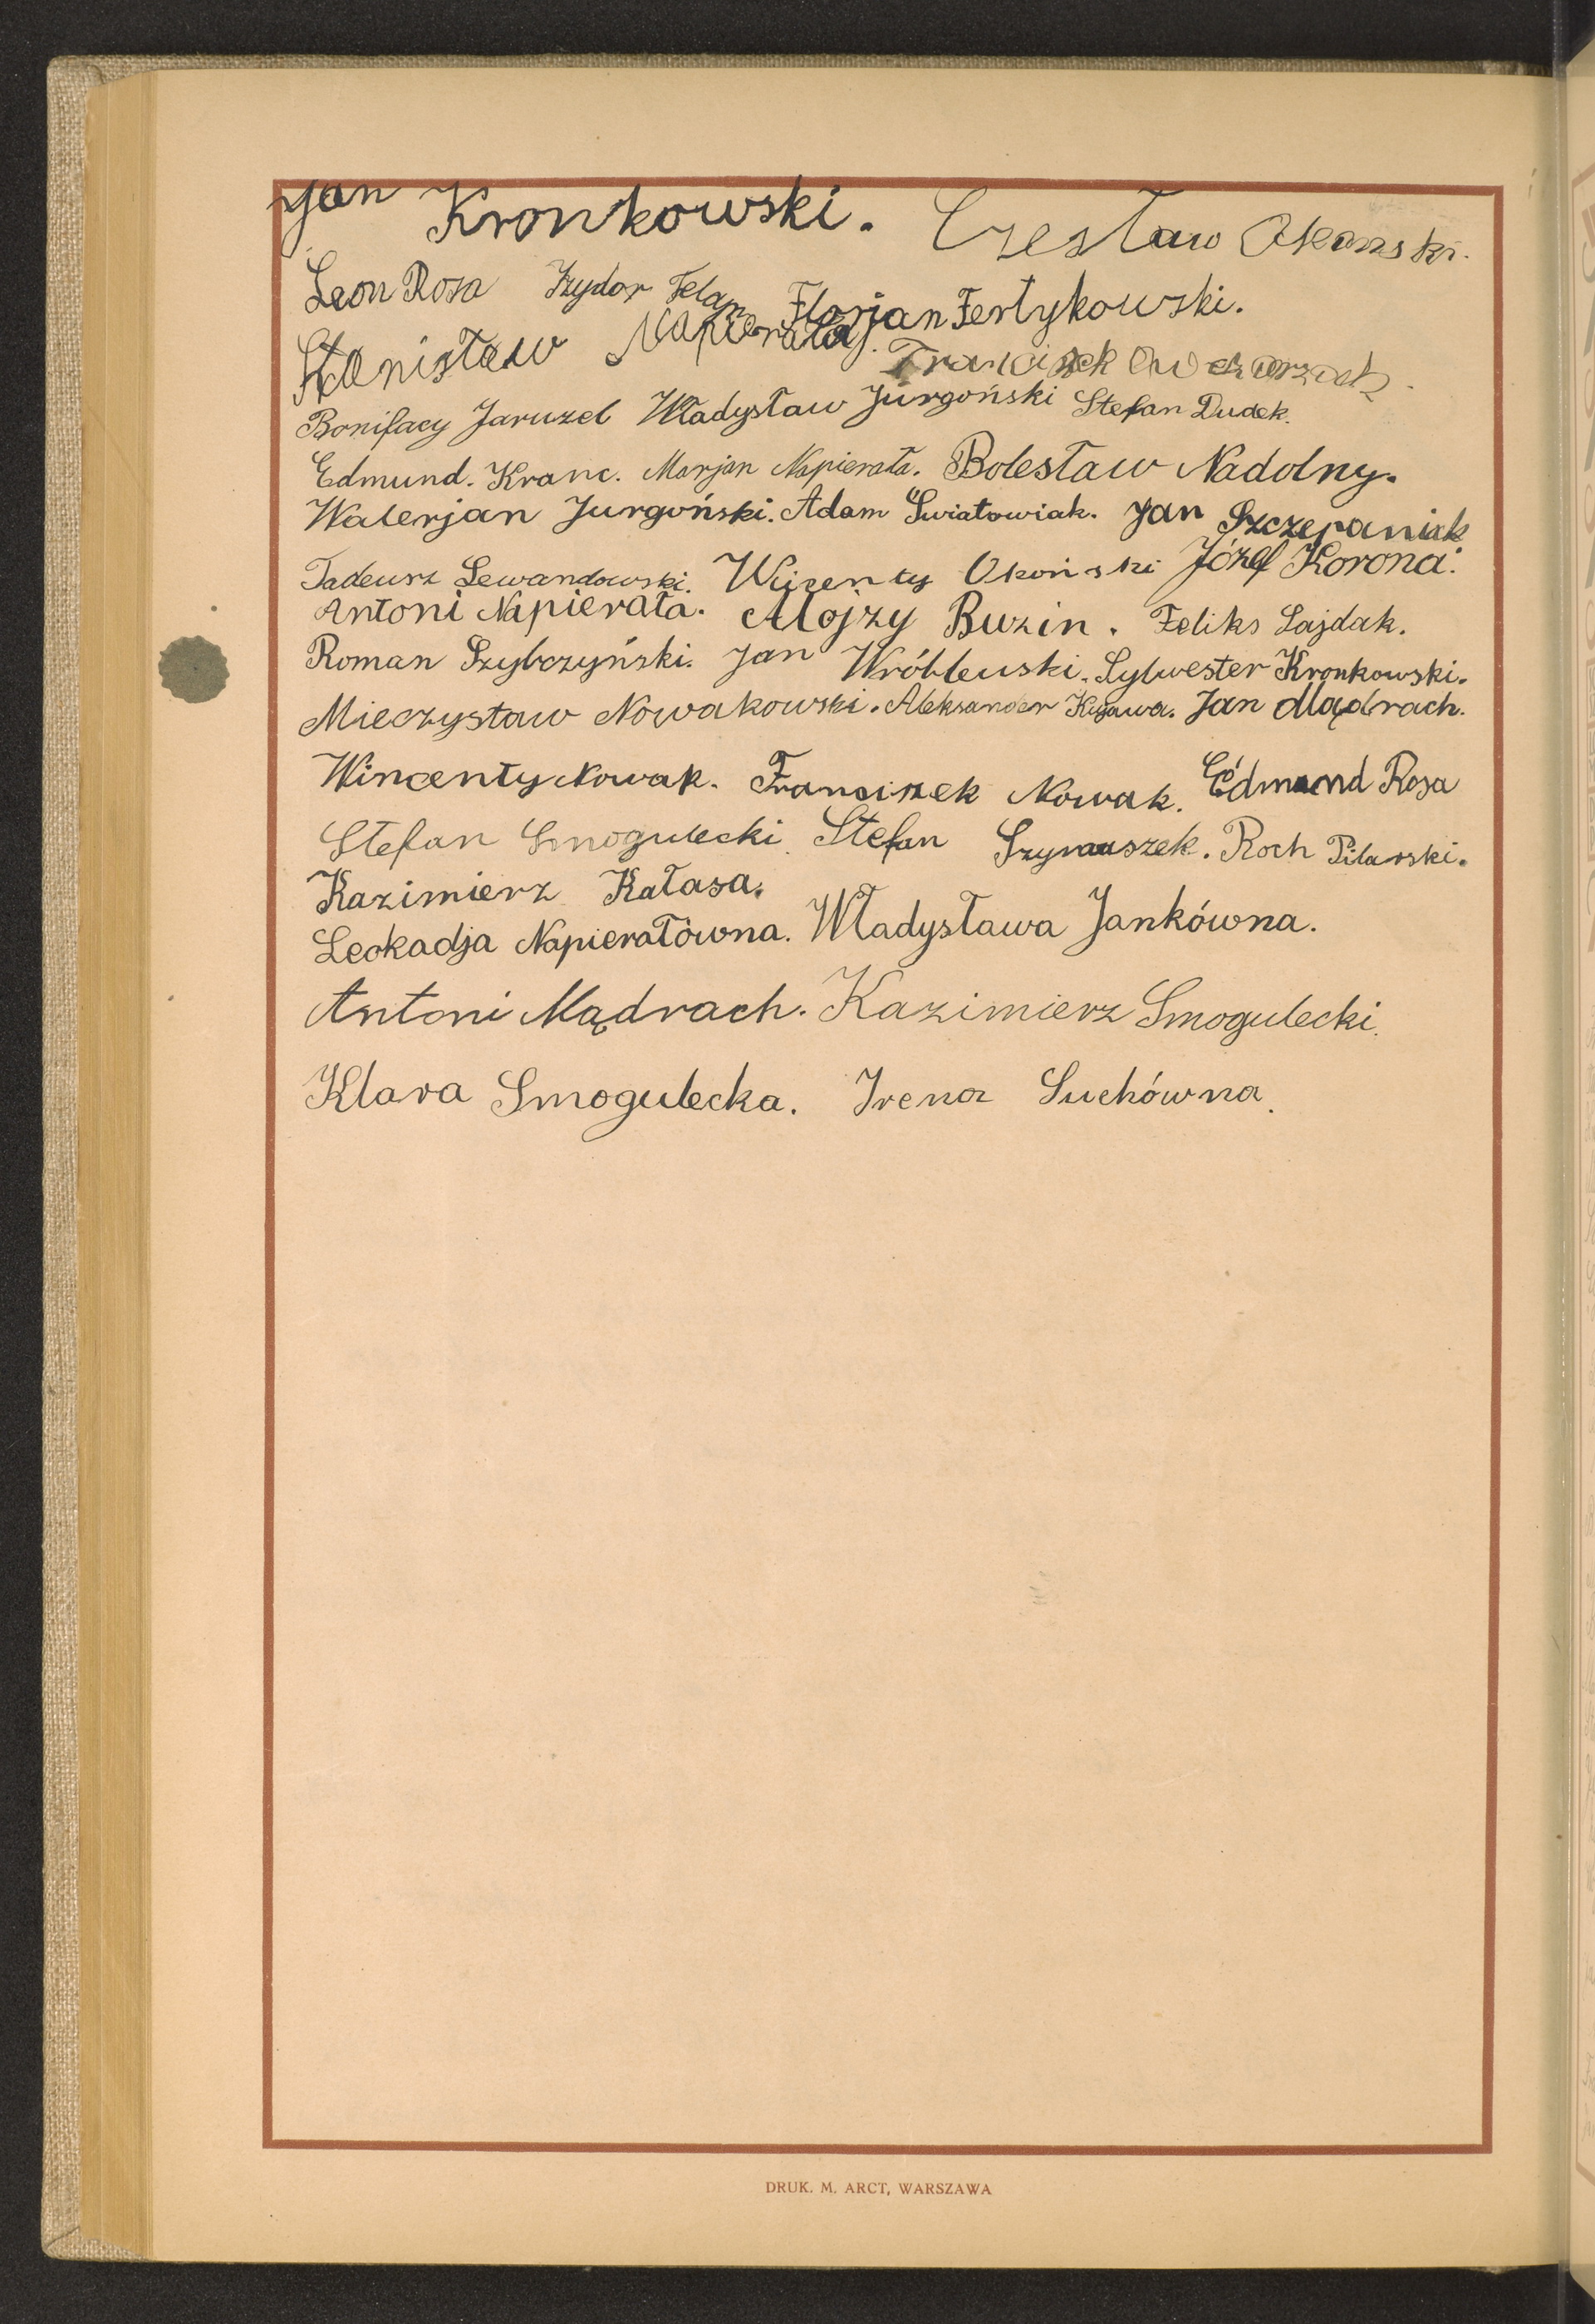 Jan Kronkowski. Czesław Okonski.
Leon Rosa Izydor Felan Florjan Fertykowski.
Stanisław Napierała. Franciszek Owczarzak.
Bonifacy Jaruzel Władysław Jurgoński Stefan Dudek.
Edmund. Kranc. Marjan Napierała. Bolesław Nadolny.
Walerjan Jurgoński. Adam Światowiak. Jan Szczepaniak
Tadeusz Lewandowski. Wicenty Okoński Józef Korona.
Antoni Napierała. Alojzy Buzin. Feliks Lajdak.
Roman Szybczyński. Jan Wróblewski. Sylwester Kronkowski.
Mieczysław Nowakowski. Aleksander Kujawa. Jan Mądrach.
Wincenty Nowak. Franciszek Nowak. Edmund Rosa
Stefan Smogulecki. Stefan Szymaszek. Roch Pilarski.
Kazimierz Kałasa.
Leokadja Napierałówna. Władysława Jankówna.
Antoni Mądrach. Kazimierz Smogulecki.
Klara Smogulecka. Irena Suchówna.
DRUK. M. ARCT, WARSZAWA